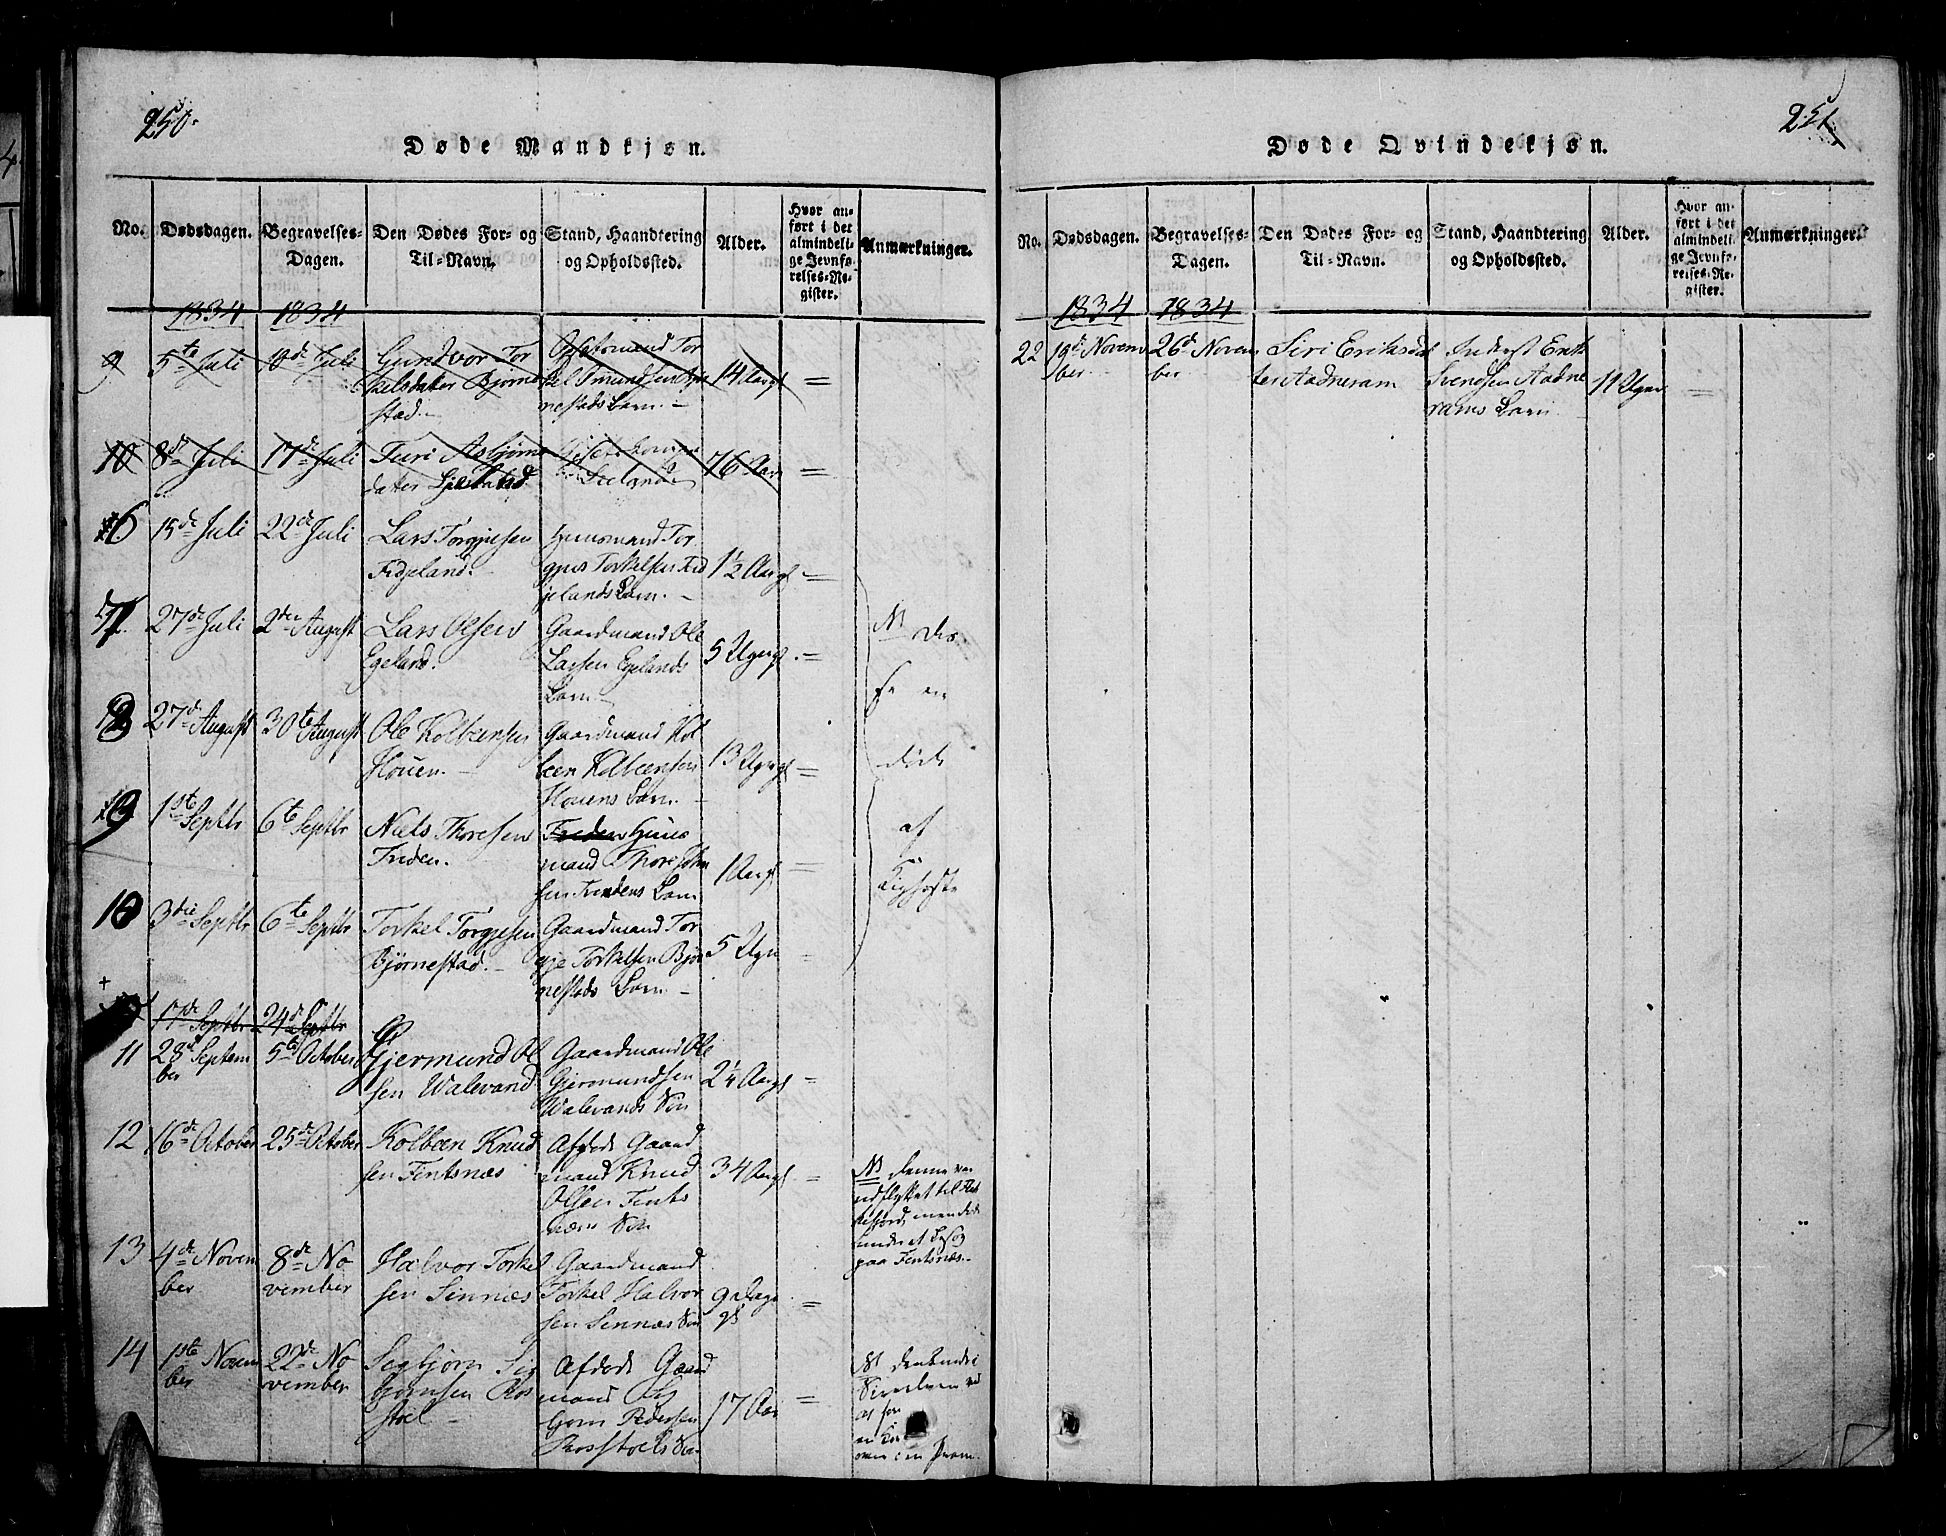 250.
Døde Mandkjøn.
No.
Dødsdagen.
Begravelses-
Dagen.
Den Dødes For- og
Til-Navn.
Stand, Haandtering
og Opholdssted.
Alder.
Hvor an-
ført i det
almindeli-
ge Jevnfø-
relses-Re-
gister.
Anmærkninger.
1834 1834
9 5te Juli 10de Juli Gundvor Tor
kelsdater Bjørne
stad.
14 Aargl =
nestads Barn.
10 8de Juli 17de Juli Turi Asbjørns
dater
76 Aar =
6 15de Juli 22de Juli Lars Torgjesen
Fidjeland.
Huusmand Tor
gjus Torkelsen Fid
jelands Barn.
1½ Aargl =
7 27de Juli 2den August Lars Olsen
Egeland.
Gaardmand Ole
Larsen Egelands
Barn
5 Ugergl. =
8 27de August 30te August Ole Kolbeensen
Houen.
Gaardmand Kol
been Kolbeensen
Houens Barn.
13 Ugrgl =
9 1ste Septbr 6te Septbr Niels Thoresen
Treden.
Treden Huus
mand Thore
sen Tredens Barn
1 Aargl =
10 3die Septbr 6te Septbr Torkel Torgjesen
Bjørnestad.
Gaardmand Tor
gje Torkelsen Bjør
nestads Barn
5 Ugr =
NB
døde
af
Kighoste
17de Septbr 24de Septbr
11 28de Septem
ber
5te October Gjermund Ol
sen Walevand
Gaardmand Ole
Gjermundsen
Walevands Søn
2¼ Aargl =
12 16de October 25de October Kolbeen Knud
sen Fintsnæs
Afdøde Gaard
mand Knud
Olsen Fints
næs Søn
34 Aargl =
NB denne var
udflyttet til Flek
kefjord, men døde
under et Besøg
paa Fintsnæs.
13 4de Novem
ber
8de No
vember
Halvor Torkel
sen Sinnæs
Gaardmand
Torkel Halvor
sen Sinnæs Søn
9 Dage
gl =
14 1ste Novem
ber
22de No
vember
Segbjørn Seg
bjørnsen Ros
stoel
Afdøde Gaard
mand Seg
bjørn Pedersen
Rosstoels Søn
17 Aar =
NB
251.
Døde Qvindekjøn.
No.
Dødsdagen.
Begravelses-
Dagen.
Den Dødes For- og
Til-Navn.
Stand, Haandtering
og Opholdssted.
Alder.
Hvor an-
ført i det
almindeli-
ge Jevnfø-
relses-Re-
gister.
Anmærkninger.
1834 1834
22 19de Novem
ber
26de Novem
ber
Siri Eriksda
ter Aadneram
Inderst Erik
Svendsen Aadne
rams Barn
11 Uger =